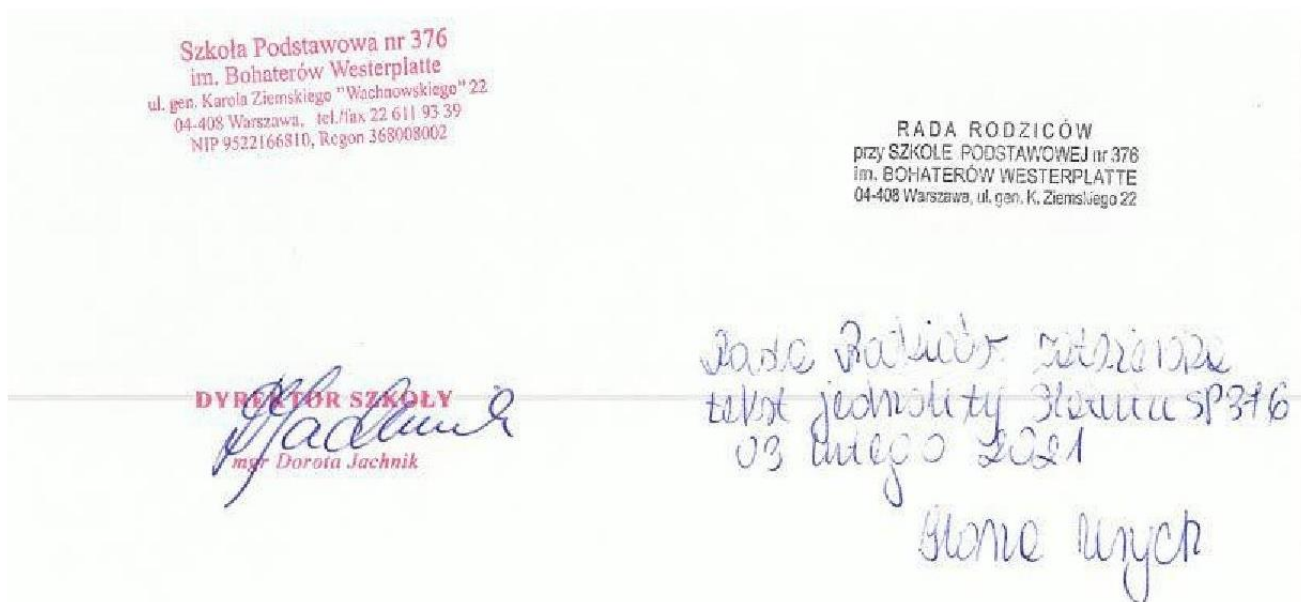 Szkoła Podstawowa nr 376
im. Bohaterów Westerplatte
ul. gen. Karola Ziemskiego "Wachnowskiego" 22
04-408 Warszawa, tel./fax 22 611 93 39
NIP 9522166810, Regon 368008002
RADA RODZICÓW
przy SZKOLE PODSTAWOWEJ nr 376
im. BOHATERÓW WESTERPLATTE
04-408 Warszawa, ul. gen. K. Ziemskiego 22
DYREKTOR SZKOŁY
mgr Dorota Jachnik
Rada Rodziców zatwierdza
tekst jednolity Statutu SP376
03 lutego 2021